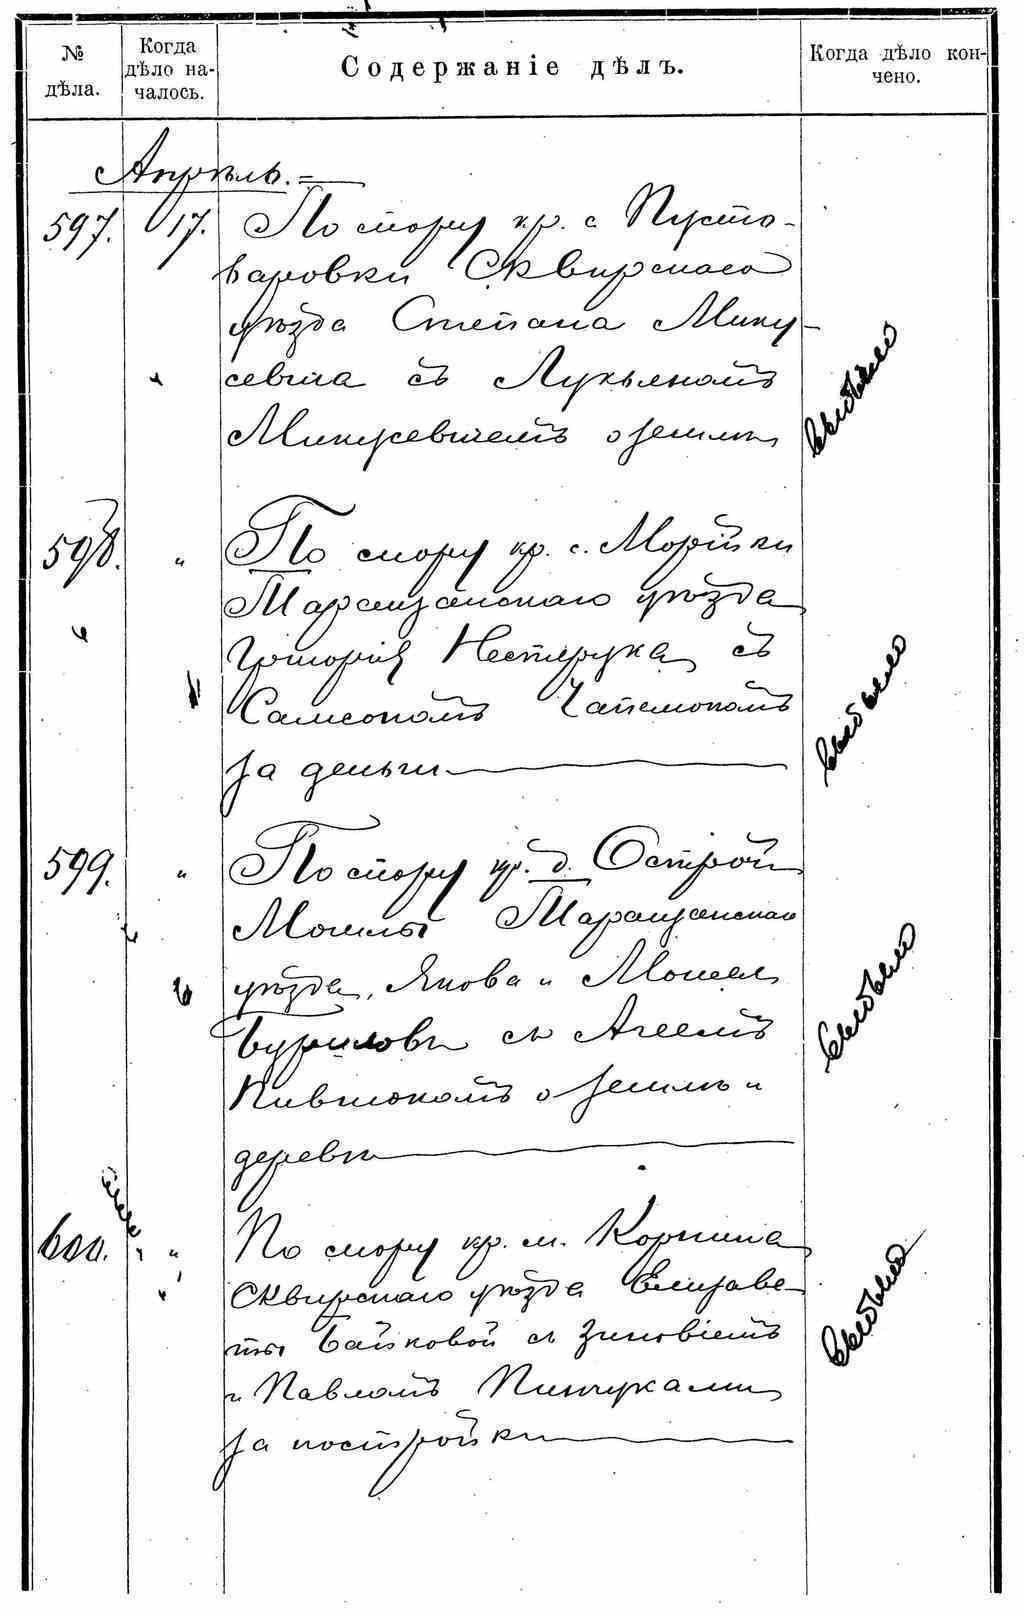 № дѣла.
Когда дѣло на-
чалось.
Содержаніе дѣлъ.
Когда дѣло кон-
чено.
Апрѣль.=
597. 17. По спору кр. с. Пусто-
варовки Сквирскаго
уѣзда Степана Мику-
севича съ Лукьяномъ
Микусевичемъ о землѣ
598. " По спору кр. с. Морійки
Таращанскаго уѣзда
Григорія Нестерука съ
Самсономъ
за деньги
599. " По спору кр. д. Острой
Могилы Таращанскаго
уѣзда, Якова и Моисея
съ Агеемъ
о землѣ и
деревѣ
600. " По спору кр. м. Корнина
Сквирскаго уѣзда Елизаве-
ты Байковой съ Зиновіемъ
и Павломъ Пинчуками
за постройки